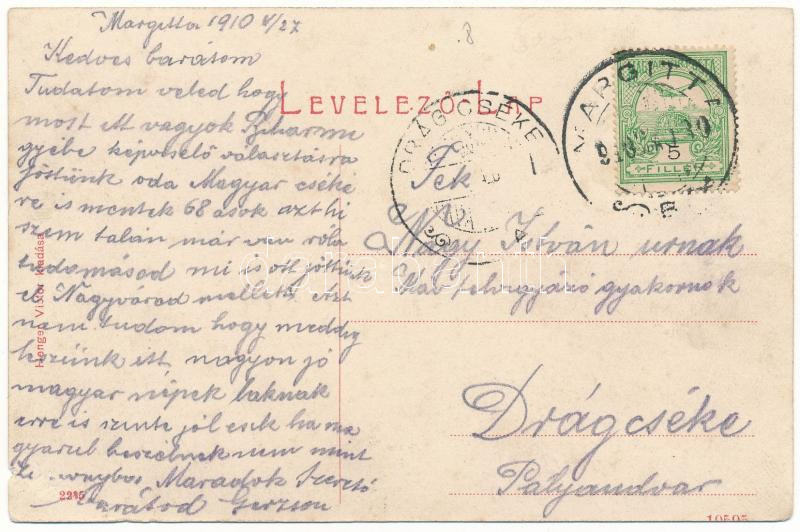 Margitta 1910 V/27
Kedves barátom
Tudatom veled hogy
most itt vagyok Biharme
gyébe képviselő választásra
jöttünk oda Magyar cséké
re is mentek 68 asok azt hi
szem talán már van róla
tudomásod mi is ott jöttünk
el Nagyvárad mellett ezt
nem tudom hogy meddig
leszünk itt nagyon jó
magyar népek laknak
erre is szinte jól esik ha ma
gyarul beszélnek nem mint
Maradok Szerető
barátod Gerzson
LEVELEZŐ-LAP
DRÁGCSÉKE
MARGITTA
FILLÉR
5
Tek
Nagy István urnak
gyakornok
Drágcséke
Pályaudvar
Henger Viktor kiadása
2215
10595
darabanth